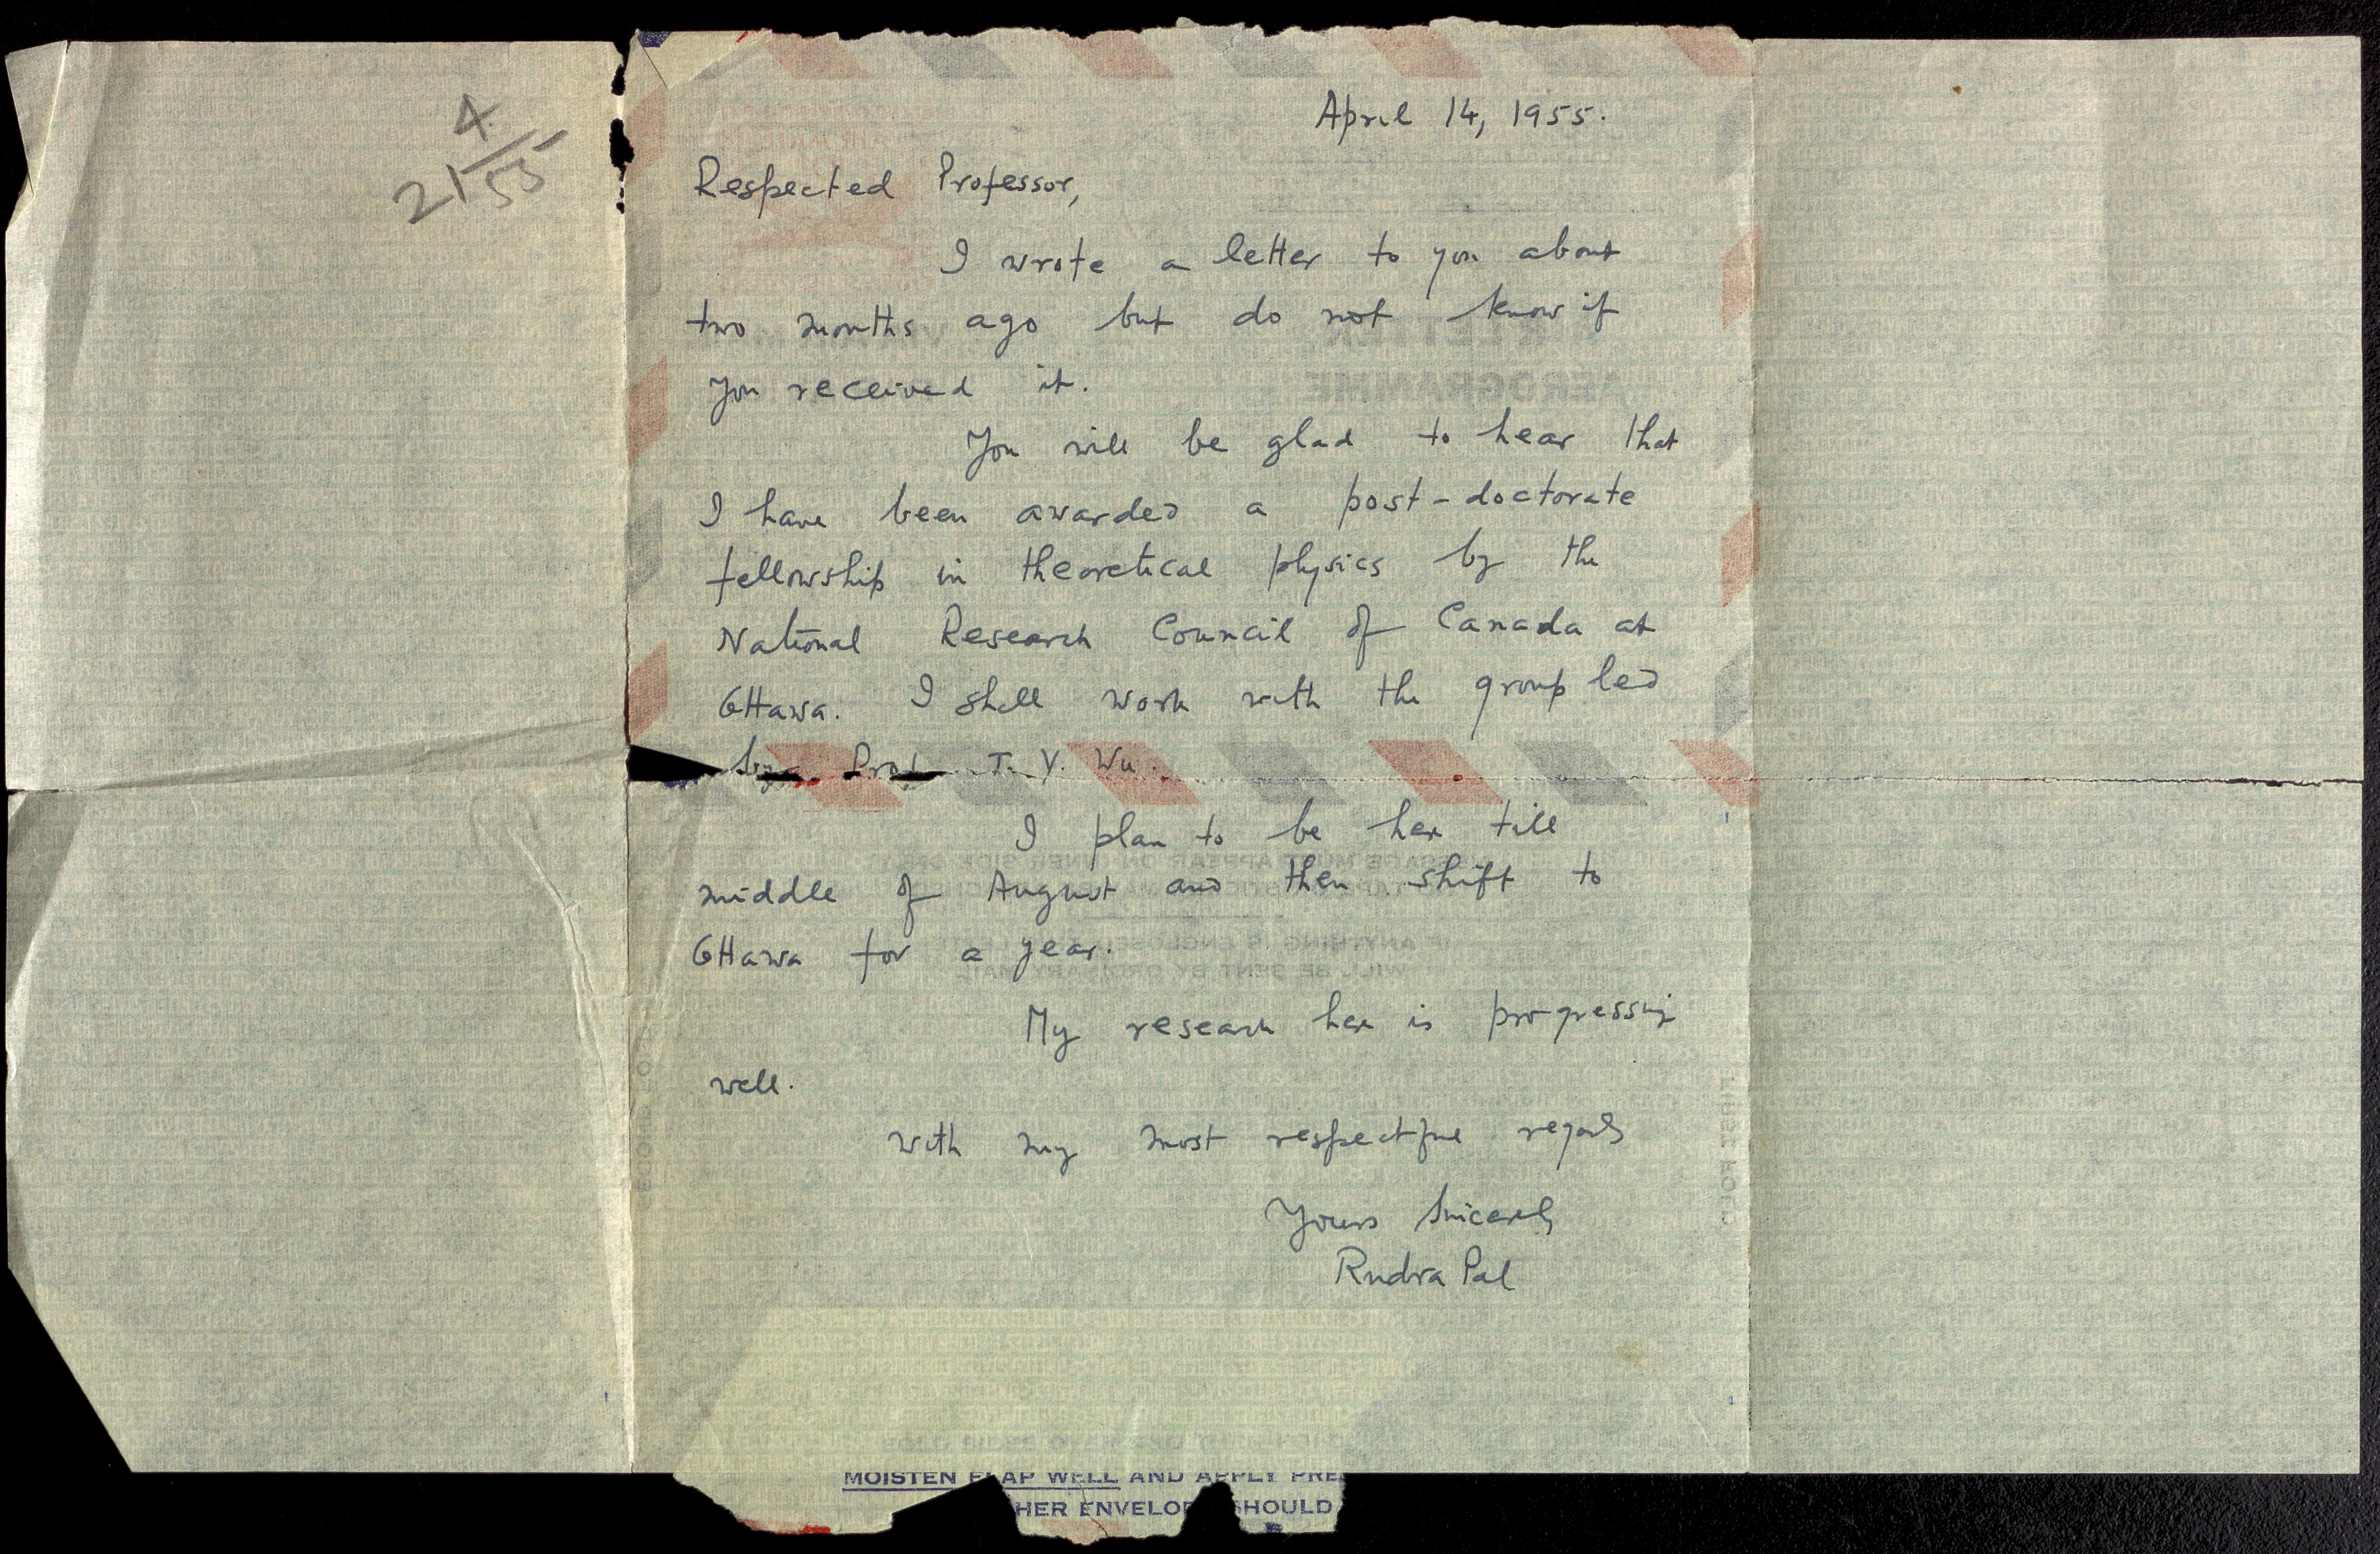 4
21/55
April 14, 1955.
Respected Professor,
I wrote a letter to you about
two months ago but do not know if
you received it.
You will be glad to hear that
I have been awarded a post-doctorate
fellowship in theoretical physics by the
National Research Council of Canada at
Ottawa. I shall work with the group led
by Prof T. Y. Wu.
I plan to be here till
middle of August and then shift to
Ottawa for a year.
My research here is progressing
well.
with my most respectful regards
Yours Sincerely
Rudra Pal
MOISTEN FLAP WELL AND APPLY PRE
HER ENVELOP SHOULD